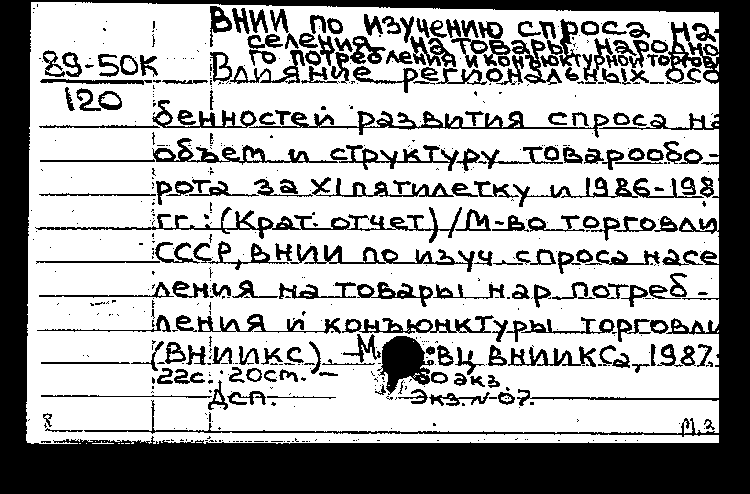 ВНИИ по изучению спроса на-
селения на товары народно
го потребления и конъюктурной торговл
89-50К
120
Влияние региональных осо
бенностей развития спроса на
объем и структуру товарообо-
рота за XI пятилетку и 1986-198
гг.: (Крат. отчет) / М-во торговли
СССР, ВНИИ по изуч. спроса насе
ления на товары нар. потреб-
ления и конъюнктуры торговли
(ВНИИКС). -М. :ВЦ ВНИИКСа, 1987.-
22с.; 20см. - 60 экз.
Дсп. Экз. N 07.
8
М.З